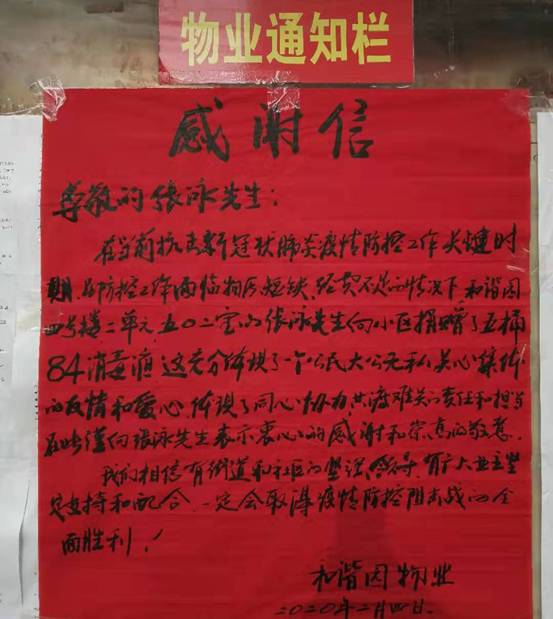 物业通知栏
感谢信
尊敬的张泳先生：
在当前抗击新冠状肺炎疫情防控工作关键时
期，在防控工作面临物资短缺、经费不足的情况下，和谐园
四号楼二单元五〇二室的张泳先生向小区捐赠了五桶
84消毒液，这充分体现了一个公民大公无私、关心集体
的友情和爱心，体现了同心协力、共渡难关的责任和担当
在此谨向张泳先生表示衷心的感谢和崇高的敬意。
我们相信有街道和社区的坚强领导，有广大业主坚
定支持和配合，一定会取得疫情防控阻击战的全
面胜利！
和谐园物业
二〇二〇年二月四日.